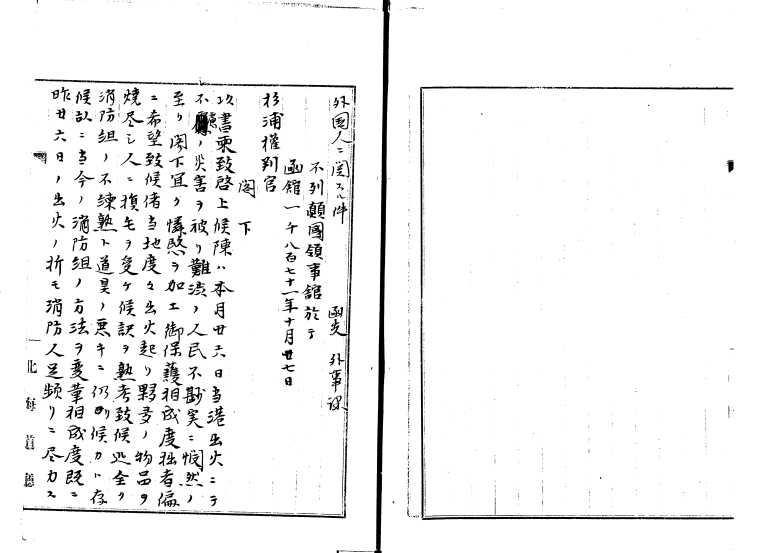 外国人ニ関スル件　函支　外事課
不列顛國領事館於テ
函館一千八百七十一年十月廿七日
杉浦權判官
閣下
以書柬致啓上候陳ハ本月廿六日当港出火ニテ
不慮ノ災害ヲ被リ難渋ノ人民不尠実ニ憫然ノ
至リ閣下宜ク憐愍ヲ加エ御保護相成度拙者偏
ニ希望致候偖当地度々出火起リ夥多ノ物品ヲ
焼尽シ人ニ損毛ヲ受ケ候訳ヲ熟考致候処全ク
消防組ノ不練熟ト道具ノ悪キニ仍リ候カト存
候故ニ当今ノ消防組ノ方法ヲ変革相成度既ニ
昨廿六日ノ出火ノ折モ消防人足頻リニ尽力ス
北海道廳